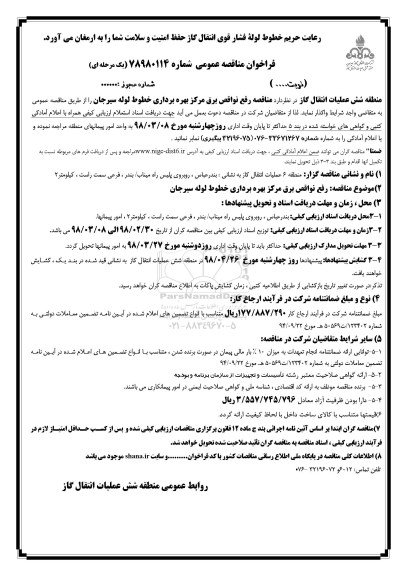 رعایت حریم خطوط لولۀ فشار قوی انتقال گاز حفظ امنیت و سلامت شما را به ارمغان می آورد.
فراخوان مناقصه عمومی شماره ۷۸۹۸۰۱۱۴ (یک مرحله ای)
(نوبت.....)
شماره مجوز : ۰۰۰۰۰۰
منطقه شش عملیات انتقال گاز در نظردارد مناقصه رفع نواقص برق مرکز بهره برداری خطوط لوله سیرجان را از طریق مناقصه عمومی
به متقاضی واجد شرایط واگذار نماید. لذا از متقاضیان شرکت در مناقصه دعوت بعمل می آید جهت دریافت اسناد استعلام ارزیابی کیفی همراه با اعلام آمادگی
کتبی و گواهی های خواسته شده در بند ۵ حداکثر تا پایان وقت اداری روز چهارشنبه مورخ ۹۸/۰۳/۰۸ به واحد امور پیمانهای منطقه مراجعه نموده و
یا اعلام آمادگی را به شماره ۳۳۶۷۱۲۶۷-۰۷۶ (۳۲۱۹۶۰۷۵) فکس نمایند.
ضمنا" مناقصه گران می توانند ضمن اعلام آمادگی کتبی ، جهت دریافت اسناد ارزیابی کیفی به آدرس www.nigc-dist6.ir مراجعه و پس از دریافت فرم های مربوطه نسبت به
تکمیل آنها اقدام و طبق بند ۳-۳ ذیل تحویل نمایند.
۱) نام و نشانی مناقصه گزار: منطقه ۶ عملیات انتقال گاز به نشانی : بندرعباس ، روبروی پلیس راه میناب/ بندر ، فرعی سمت راست ، کیلومتر۲
۲)موضوع مناقصه: رفع نواقص برق مرکز بهره برداری خطوط لوله سیرجان
۳) محل ، زمان و مهلت دریافت اسناد و تحویل پیشنهادها :
۳-۱محل دریافت اسناد ارزیابی کیفی: بندرعباس ، روبروی پلیس راه میناب/ بندر ، فرعی سمت راست ، کیلومتر۲ ، امور پیمانها.
۳-۲زمان و مهلت دریافت اسناد ارزیابی کیفی: توزیع اسناد ارزیابی کیفی بین مناقصه گران از تاریخ ۹۸/۰۲/۳۰ الی ۹۸/۰۳/۰۸ می باشد.
۳-۳ مهلت تحویل مدارک ارزیابی کیفی: حداکثر باید تا پایان وقت اداری روزدوشنبه مورخ ۹۸/۰۳/۲۷ به امور پیمانها تحویل گردد.
۳-۴ گشایش پیشنهادها: پیشنهادها روز چهارشنبه مورخ ۹۸/۰۴/۲۶ در منطقه شش عملیات انتقال گاز به نشانی قید شده در بند یک ، گشایش
خواهند یافت.
تذکر:در صورت تغییر تاریخ بازگشایی از طریق اطلاعیه کتبی ، زمان گشایش پاکات به اطلاع مناقصه گران خواهد رسید.
۴) نوع و مبلغ ضمانتنامه شرکت در فرآیند ارجاع کار:
مبلغ ضمانتنامه شرکت در فرآیند ارجاع کار ۱۷۷/۸۸۷/۲۹۰ریال متناسب با انواع تضمین های اعلام شده در آیین نامه تضمین معاملات دولتی به
شماره ۱۲۳۴۰۲/ت۵۰۶۵۹ هـ مورخ ۹۴/۰۹/۲۲
۵) سایر شرایط متقاضیان شرکت در مناقصه:
۵-۱-توانایی ارائه ضمانتنامه انجام تعهدات به میزان ۱۰ % بار مالی پیمان در صورت برنده شدن ، متناسب با انواع تضمین های اعلام شده در آیین نامه
تضمین معاملات دولتی به شماره ۱۲۳۴۰۲/ت۵۰۶۵۹ هـ مورخ ۹۴/۰۹/۲۲
۵-۲- ارائه گواهی صلاحیت معتبر رشته تاسیسات و تجهیزات از سازمان برنامه و بودجه
۵-۳- برنده مناقصه موظف به ارائه کد اقتصادی ، شناسه ملی و گواهی صلاحیت ایمنی در امور پیمانکاری می باشد.
۵-۴- دارا بودن ظرفیت آزاد معادل ۳/۵۵۷/۷۴۵/۷۹۶ ریال
۶)قیمتها متناسب با کالای ساخت داخل با لحاظ کیفیت ارائه گردد.
۷)مناقصه گران ابتدا بر اساس آئین نامه اجرائی بند ج ماده ۱۲ قانون برگزاری مناقصات ارزیابی کیفی شده و پس از کسب حداقل امتیاز لازم در
فرآیند ارزیابی کیفی ، اسناد مناقصه به مناقصه گران تائید صلاحیت شده تحویل خواهد شد.
۸) اطلاعات کلی مناقصه در پایگاه ملی اطلاع رسانی مناقصات کشور با کد فراخوان...........و سایت shana.ir موجود می باشد
تلفن تماس: ۱۲-۶و ۳۲۱۹۶۰۷۲ -۰۷۶
روابط عمومی منطقه شش عملیات انتقال گاز